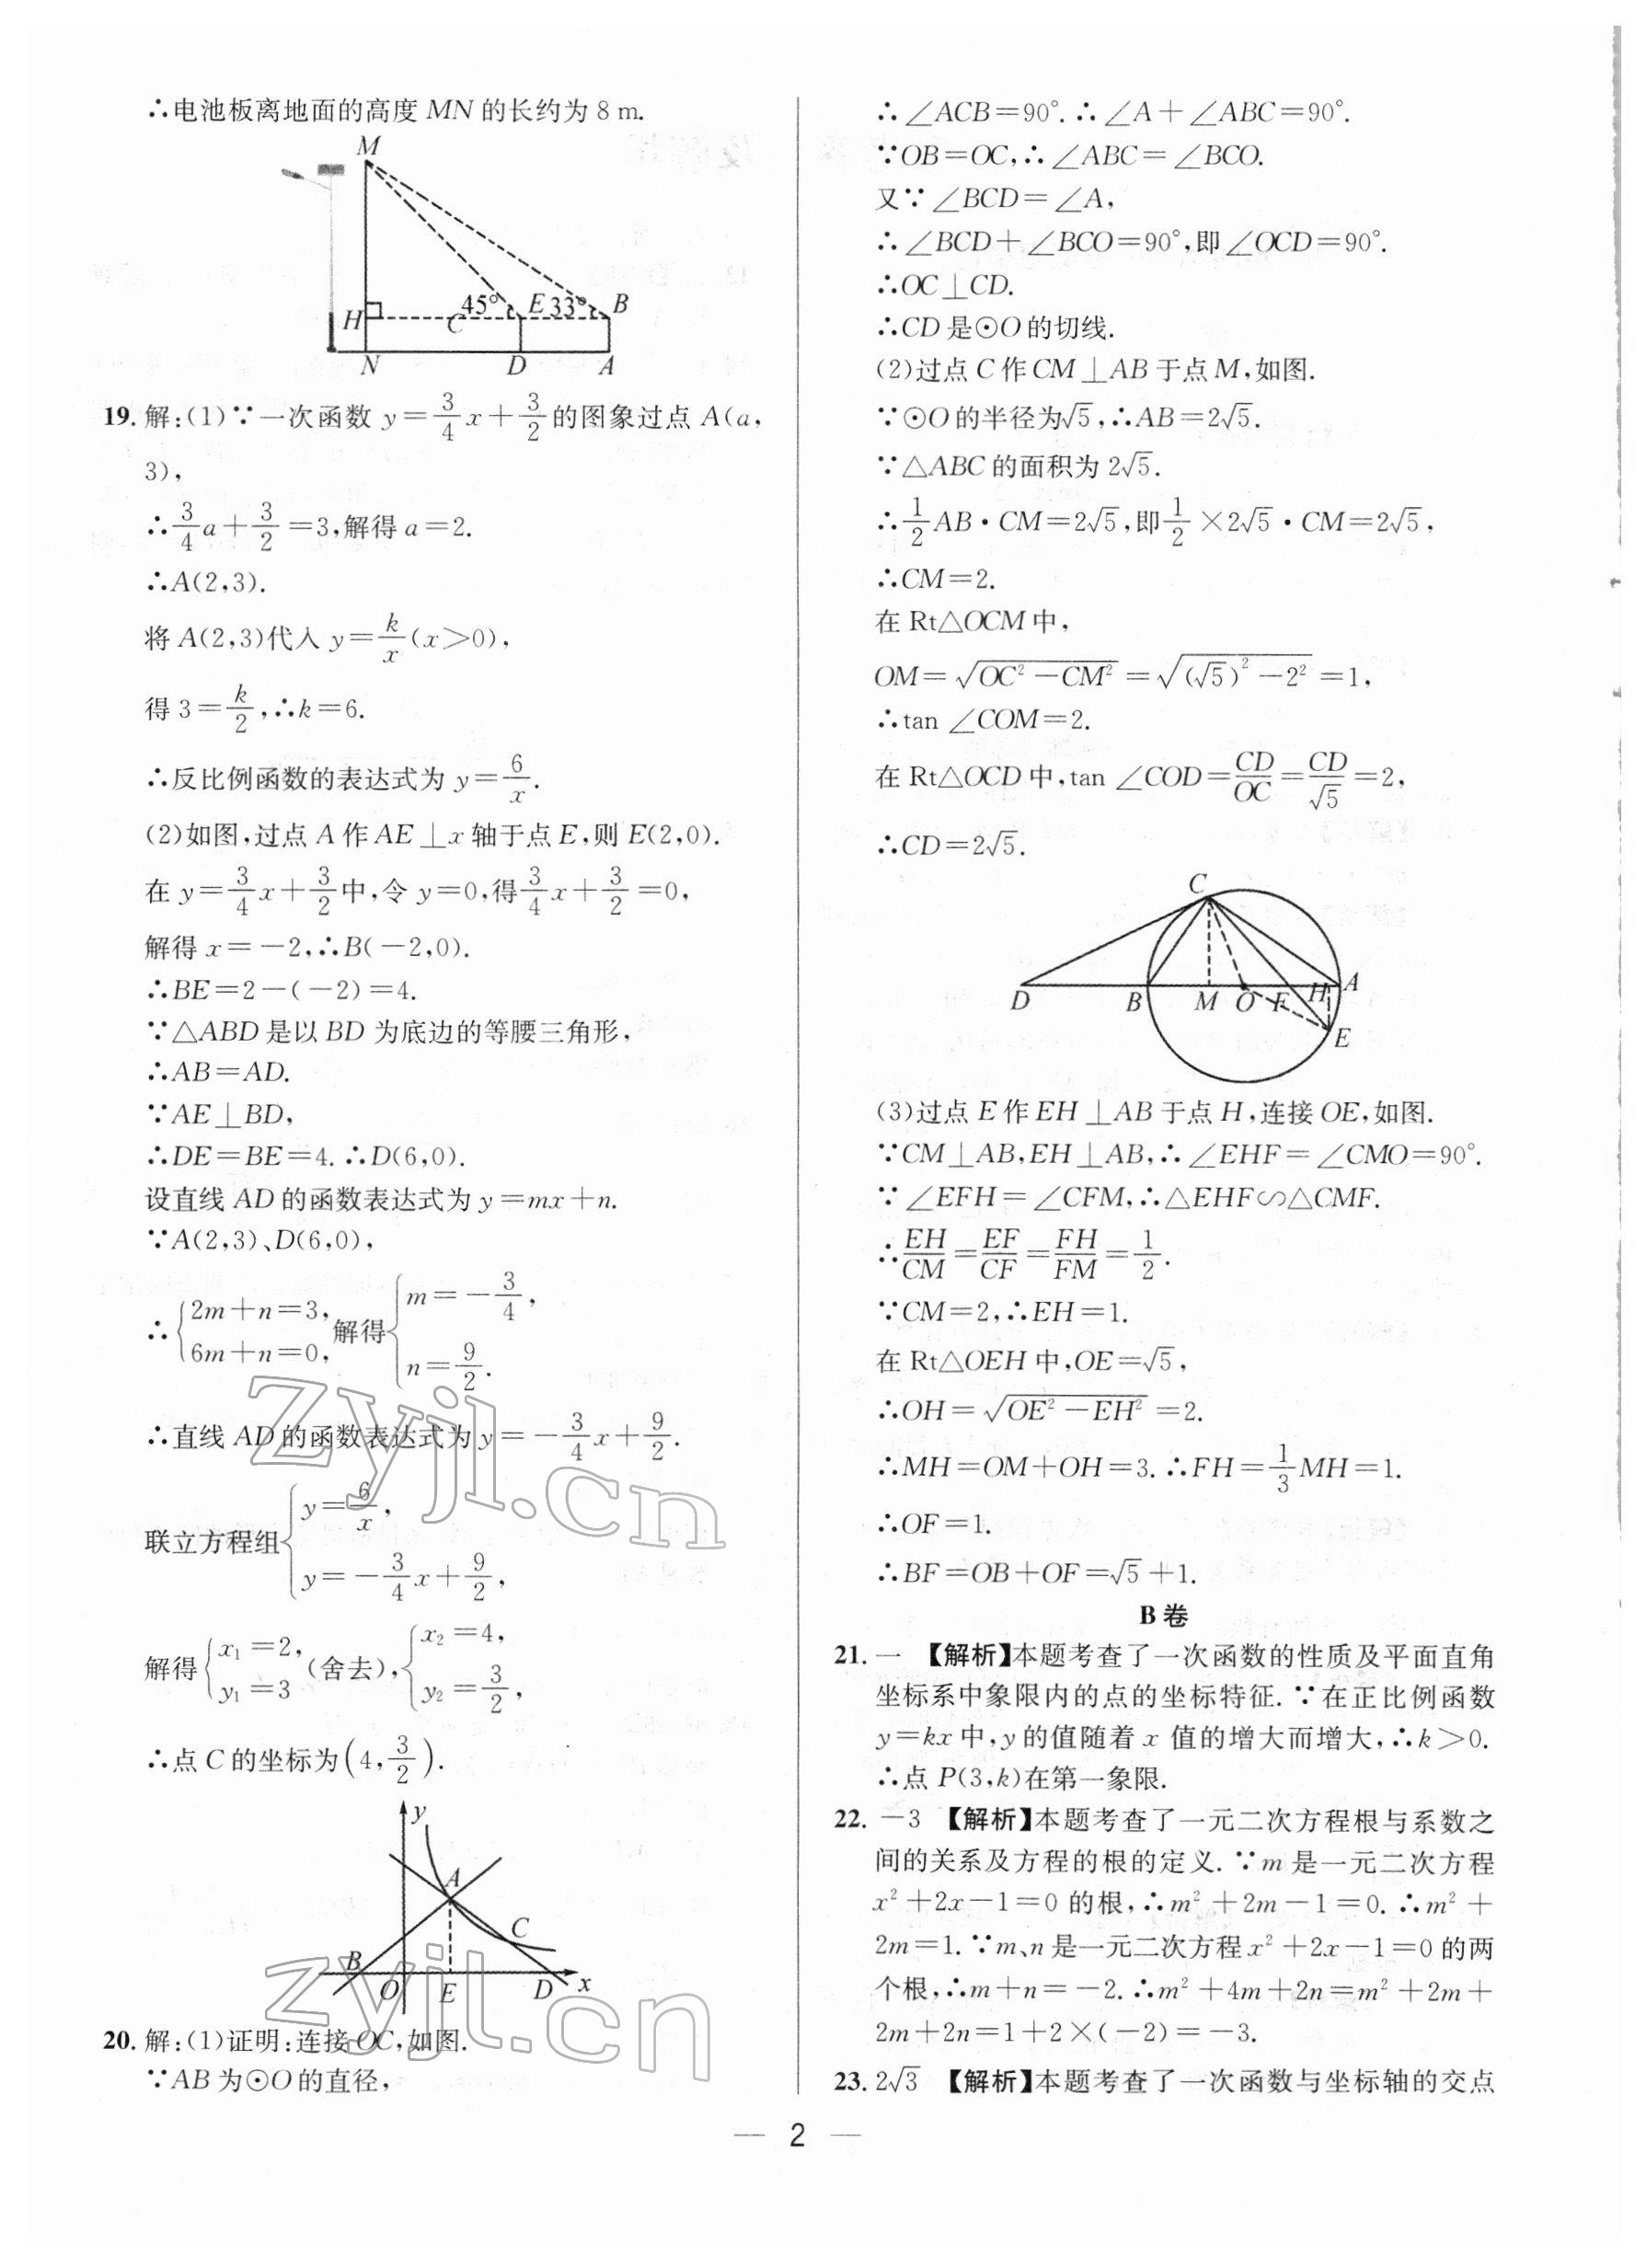 ∴电池板离地面的高度 MN 的长约为 8 m.
M
45° E 33° B
H C
N D A
19. 解:(1)∵一次函数 y=3/4x+3/2的图象过点 A(a,
3),
∴3/4a+3/2=3,解得 a=2.
∴A(2,3).
将 A(2,3)代入 y=k/x(x>0),
得 3=k/2,∴k=6.
∴反比例函数的表达式为 y=6/x.
(2)如图,过点 A 作 AE⊥x 轴于点 E,则 E(2,0).
在 y=3/4x+3/2中,令 y=0,得3/4x+3/2=0,
解得 x=-2,∴B(-2,0).
∴BE=2-(-2)=4.
∵△ABD 是以 BD 为底边的等腰三角形,
∴AB=AD.
∵AE⊥BD,
∴DE=BE=4. ∴D(6,0).
设直线 AD 的函数表达式为 y=mx+n.
∵A(2,3)、D(6,0),
∴{2m+n=3, 6m+n=0, 解得{m=-3/4, n=9/2.
∴直线 AD 的函数表达式为 y=-3/4x+9/2.
联立方程组{y=6/x, y=-3/4x+9/2,
解得{x₁=2, y₁=3 (舍去),{x₂=4, y₂=3/2,
∴点 C 的坐标为(4,3/2).
y
A
C
B O E D x
20. 解:(1)证明:连接 OC,如图.
∵AB 为⊙O 的直径,
∴∠ACB=90°. ∴∠A+∠ABC=90°.
∵OB=OC,∴∠ABC=∠BCO.
又∵∠BCD=∠A,
∴∠BCD+∠BCO=90°,即∠OCD=90°.
∴OC⊥CD.
∴CD 是⊙O 的切线.
(2)过点 C 作 CM⊥AB 于点 M,如图.
∵⊙O 的半径为√5,∴AB=2√5.
∵△ABC 的面积为 2√5.
∴1/2AB·CM=2√5,即1/2×2√5·CM=2√5,
∴CM=2.
在 Rt△OCM 中,
OM=√(OC²-CM²)=√((√5)²-2²)=1,
∴tan ∠COM=2.
在 Rt△OCD 中,tan ∠COD=CD/OC=CD/√5=2,
∴CD=2√5.
C
D B M O F H A
E
(3)过点 E 作 EH⊥AB 于点 H,连接 OE,如图.
∵CM⊥AB,EH⊥AB,∴∠EHF=∠CMO=90°.
∵∠EFH=∠CFM,∴△EHF∽△CMF.
∴EH/CM=EF/CF=FH/FM=1/2.
∵CM=2,∴EH=1.
在 Rt△OEH 中,OE=√5,
∴OH=√(OE²-EH²)=2.
∴MH=OM+OH=3. ∴FH=1/3MH=1.
∴OF=1.
∴BF=OB+OF=√5+1.
B 卷
21. 一 【解析】本题考查了一次函数的性质及平面直角
坐标系中象限内的点的坐标特征. ∵在正比例函数
y=kx 中,y 的值随着 x 值的增大而增大,∴k>0.
∴点 P(3,k)在第一象限.
22. -3 【解析】本题考查了一元二次方程根与系数之
间的关系及方程的根的定义. ∵m 是一元二次方程
x²+2x-1=0 的根,∴m²+2m-1=0. ∴m²+
2m=1. ∵m、n 是一元二次方程 x²+2x-1=0 的两
个根,∴m+n=-2. ∴m²+4m+2n=m²+2m+
2m+2n=1+2×(-2)=-3.
23. 2√3 【解析】本题考查了一次函数与坐标轴的交点
— 2 —
zyjl.cn
zyjl.cn